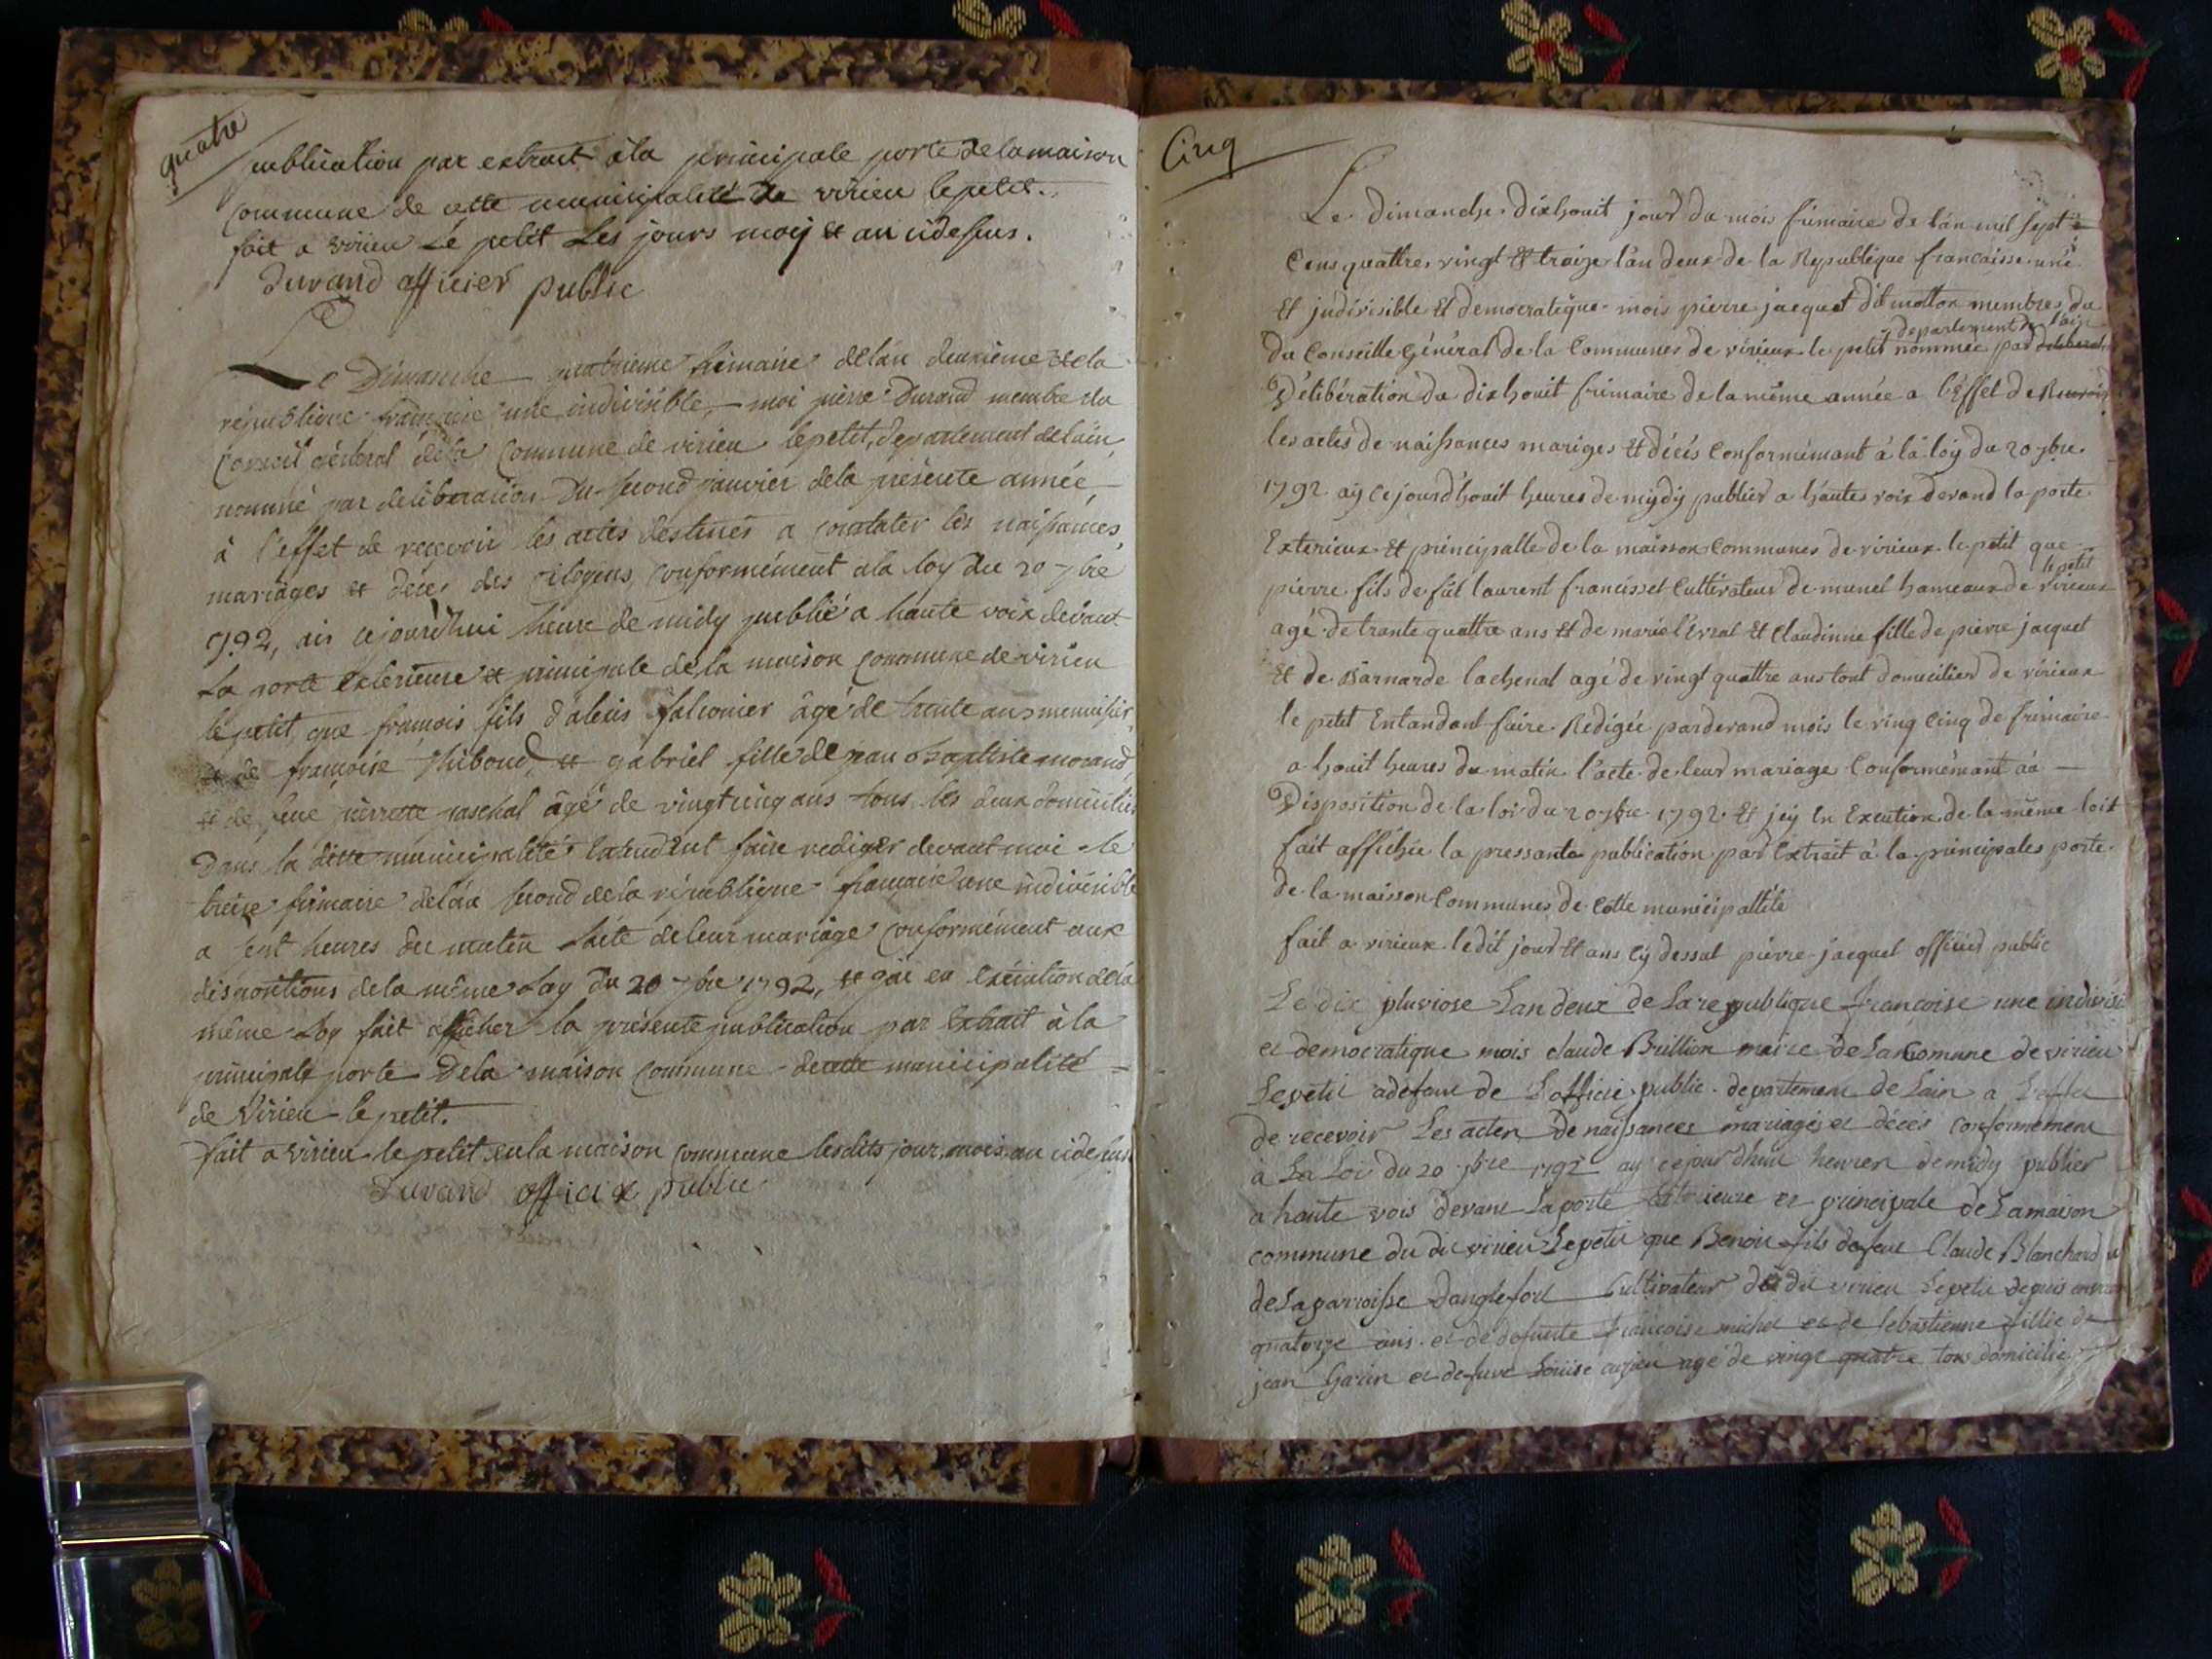 quatre
publication par extrait a la principale porte de la maison
commune de cette municipalité de virieu le petit.
fait a virieu Le petit Les jours moy et an cidessus.
Durand officier public
Le Dimanche quatrieme frimaire de lan deuxieme de la
république francaise une indivisible, moi pierre Durand membre du
Conseil général de la Commune de virieu le petit, departement de lain,
nommé par deliberation du second janvier de la presente année,
à l'effet de recevoir les actes destinés a constater les naissances,
mariages et décès des citoyens, conformément a la loy du 20 7bre
1792, ais cejourd'hui heure de midy publié a haute voix devant
La porte exterieure et principale de la maison commune de virieu
le petit, que francois fils d'alexis falconier âgé de trente ans menuisier,
et de francoise thiboud, et gabriel fille de jean Baptiste morand,
et de feue pierrette paschal âgé de vingtcinq ans tous les deux domicilies
Dans la ditte municipalité entendent faire rediger devant moi le
treize frimaire de lan second de la république francaise une indivisible
a sept heures du matin l'acte de leur mariage conformément aux
dispositions de la même Loy du 20 7bre 1792, et jai en execution de la
même Loy fait afficher la présente publication par Extrait à la
principale porte De la maison commune de cette municipalité
de Virieu le petit.
fait a virieu le petit en la maison commune lesdits jour, mois, an cidessus
Durand officier public
Cinq
Le dimanche dixhouit jour du mois frimaire de lan mil sept
Cens quattres vingt et traize l'an deux de la Republique francaisse une
Et judivisible Et democratique mois pierre jacquet dit motton membres du
departement de l'ain
du Conseille Général de la Communes de virieux le petit nommée par
Délibération du dixhouit frimaire de la même année a l'Effet de
les actes de naissances mariges et décés Conformémant à la loy du 20 7bre.
1792 aÿ cejourd'houit heures de mydy publier a hautes voix devand la porte
Exterieux et principalle de la maisson Communes de virieux le petit que
le petit
pierre fils de fût laurent francisset Cultivateur de munet hameaux de virieux
agé de trante quattre ans Et de marie l'Evrat Et Claudinne fille de pierre jacquet
Et de Barnarde lachenal agé de vingt quattre ans tout domicilier de virieux
le petit Entandant faire Redigée pardevand mois le ving cinq de frimaire
a houit heures du matin l'acte de leur mariage Conformémant aà
Disposition de la loi du 20 7bre 1792. Et jey En Execution de la même loit
fait affichée la pressante publication par Extrait à la principales porte
de la maisson Communes de Cette municipallité
fait a virieux ledit jour Et ans cy dessut pierre jacquet officier public
Le dix pluviose Lan deux de La republique francoise une indivisi
et democratique mois claude Brillion maire de La comune de virieu
Le petit adefaut de Lofficié public departement de Lain a Leffet
de recevoir Les acten de naissances mariages et décés conformement
à La Loi du 20 7bre 1792 ay cejourdhui heuren de midy publier
a haute vois devant La porte Exterieure et principale de La maison
commune du dit virieu Le petit que Benoit fils defeut Claude Blanchard
de La parroisse danglefort Cultivateur du dit virieu Le petit depuis environ
quatorze ans et de defunte francoise michel et de sebastienne fillie de
jean Garin et defeue Louise agé de vingt quatre tous domicilié